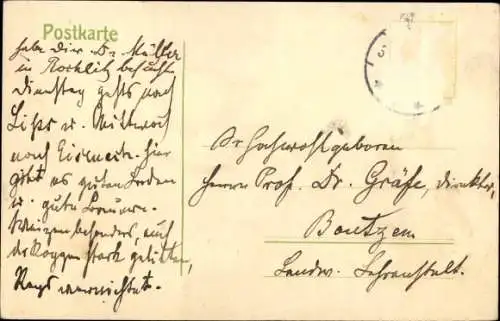 Postkarte
habe Dr. Müller
in Rochlitz besucht
Dienstag gehts nach
u. Mittwoch
nach hier
gibt es guten Boden
u. gute
Weizen besonders, auch
der Roggen stark gelitten,
Raps vernichtet.
Sr Hochwohlgeboren
Herrn Prof. Dr. Gräfe, Direktor,
Bautzen
Landw. Lehranstalt.